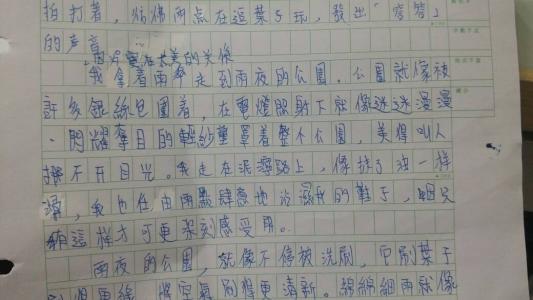 拍打著，彷彿雨点在逗葉子玩，發出「窸窣」
的声音
因为實在太美的关係
我拿着雨傘走到雨夜的公園。公園就像被
許多銀線包圍着，在電燈照射下就像迷迷漫漫
、閃耀奪目的輕紗蓋罩着整个公園，美得叫人
挪不开目光。我走在泥濘路上，像抹了油一样
滑，我也任由雨點肆意地沾濕我的鞋子，
這样才可更深刻感受雨。
雨夜的公園，就像不停被洗刷，只刷葉子
得更綠，將空氣刷得更清新。綿綿細雨就像